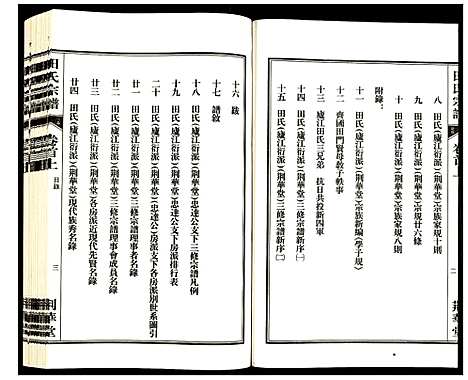 田氏宗譜
卷首上
二
荊華堂
八 田氏(廬江衍派)(荆華堂)宗族家規十則
九 田氏(廬江衍派)(荆華堂)宗規廿六條
十 田氏(廬江衍派)(荆華堂)宗族家規八則
附錄:
十一 田氏(廬江衍派)(荆華堂)宗族新編(學子規)
十二 齊國田賢母教子軼事
十三 廬江田氏三兄弟 抗日共投新四軍
十四 田氏(廬江衍派)(荆華堂)三修宗譜新序(一)
十五 田氏(廬江衍派)(荆華堂)三修宗譜新序(二)
十六 跋
十七 譜敘
十八 田氏(廬江衍派)(荆華堂)忠達公支下三修宗譜凡例
十九 田氏(廬江衍派)(荆華堂)忠達公支下房派排行表
二十 田氏(廬江衍派)(荆華堂)(忠達公)房派支下各房派別世系圖引
廿一 田氏(廬江衍派)(荆華堂)三修宗譜理事者名錄
廿二 田氏(廬江衍派)(荆華堂)三修宗譜理事會成員名錄
廿三 田氏(廬江衍派)(荆華堂)各房派近現代先賢名錄
廿四 田氏(廬江衍派)(荆華堂)現代族秀名錄
田氏宗譜
卷首上
目錄
三
荊華堂